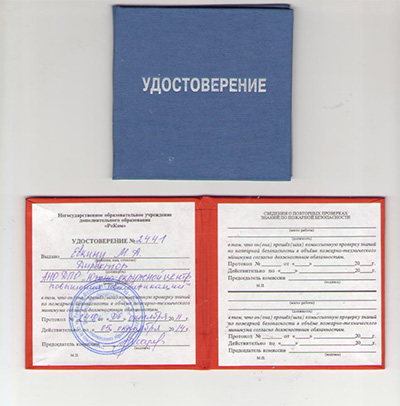 УДОСТОВЕРЕНИЕ
Негосударственное образовательное учреждение
дополнительного образования
УДОСТОВЕРЕНИЕ № 2441
Выдано Елкину М А
Директор
АНО ДПО Южно-окружной центр
повышения квалификации
в том, что он(она) прошёл(шла) комиссионную проверку знаний
по пожарной безопасности в объёме пожарно-технического
минимума согласно должностным обязанностям.
Протокол №
Действительно по «05» октября 2014г.
Председатель комиссии
М.П.
СВЕДЕНИЯ О ПОВТОРНЫХ ПРОВЕРКАХ
ЗНАНИЙ ПО ПОЖАРНОЙ БЕЗОПАСНОСТИ
(должность)
в том, что он(она) прошёл(шла) комиссионную проверку знаний
по пожарной безопасности в объёме пожарно-технического
минимума согласно должностным обязанностям.
Протокол № от «» 20 г.
Действительно по «» 20 г.
Председатель комиссии
М.П.
(должность)
в том, что он(она) прошёл(шла) комиссионную проверку знаний
по пожарной безопасности в объёме пожарно-технического
минимума согласно должностным обязанностям.
Протокол № от «» 20 г.
Действительно по «» 20 г.
Председатель комиссии
М.П.